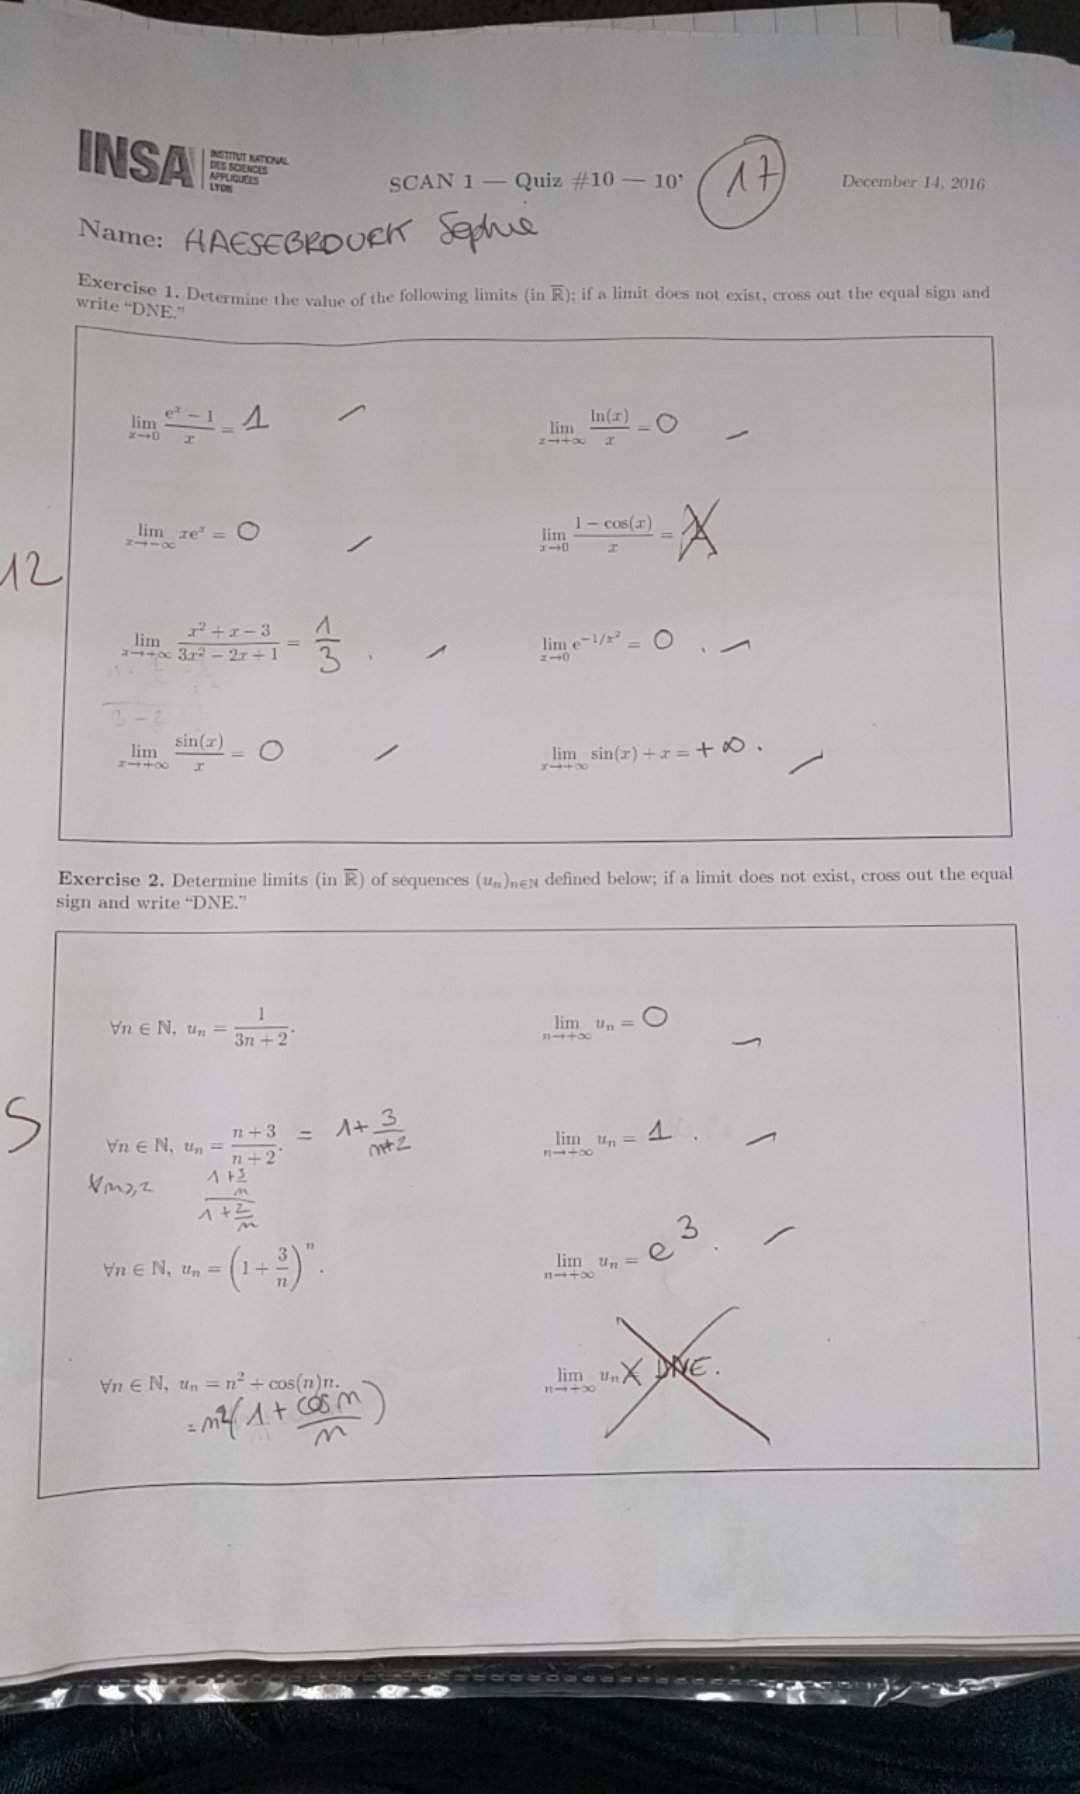 INSA INSTITUT NATIONAL
DES SCIENCES
APPLIQUÉES
LYON
SCAN 1 — Quiz #10 — 10’ 17 December 14, 2016
Name: HAESEBROUCK Sophie
Exercise 1. Determine the value of the following limits (in ℝ̅); if a limit does not exist, cross out the equal sign and
write “DNE.”
lim x→0 (e^x − 1)/x = 1
lim x→+∞ ln(x)/x = 0
lim x→−∞ xe^x = 0
lim x→0 (1 − cos(x))/x =
12
lim x→+∞ (x² + x − 3)/(3x² − 2x + 1) = 1/3 .
lim x→0 e^(−1/x²) = 0 .
lim x→+∞ sin(x)/x = 0
lim x→+∞ sin(x) + x = +∞ .
Exercise 2. Determine limits (in ℝ̅) of sequences (uₙ)ₙ∈ℕ defined below; if a limit does not exist, cross out the equal
sign and write “DNE.”
∀n ∈ ℕ, uₙ = 1/(3n + 2).
lim n→+∞ uₙ = 0
5
∀n ∈ ℕ, uₙ = (n + 3)/(n + 2). = 1 + 3/(n+2)
lim n→+∞ uₙ = 1 .
∀n≥2 (1 + 3/n)/(1 + 2/n)
∀n ∈ ℕ, uₙ = (1 + 3/n)^n.
lim n→+∞ uₙ = e³.
∀n ∈ ℕ, uₙ = n² + cos(n)n.
lim n→+∞ uₙ ≠ DNE.
= n²(1 + cos n/n)